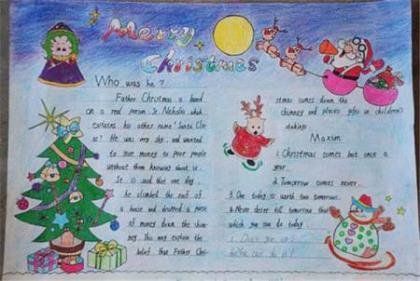 Merry
Christmas
Who was he?
Father Christmas is based
on a real person St. Nicholas which
explains his other name "Santa Cla-
us". He was very shy and wanted
to give money to poor people
without them knowing about it.
It is said that one day,
he climbed the roof of
a house and dropped a purse
of money down the chim-
ney. This may explain the
belief that Father Chri-
stmas comes down the
chimney and places gifts in children's
stockings.
Maxim
1. Christmas comes but once a
year.
2. Tomorrow comes never.
3. One today is worth two tomorrows.
4. Never defer till tomorrow that
which you can do today.